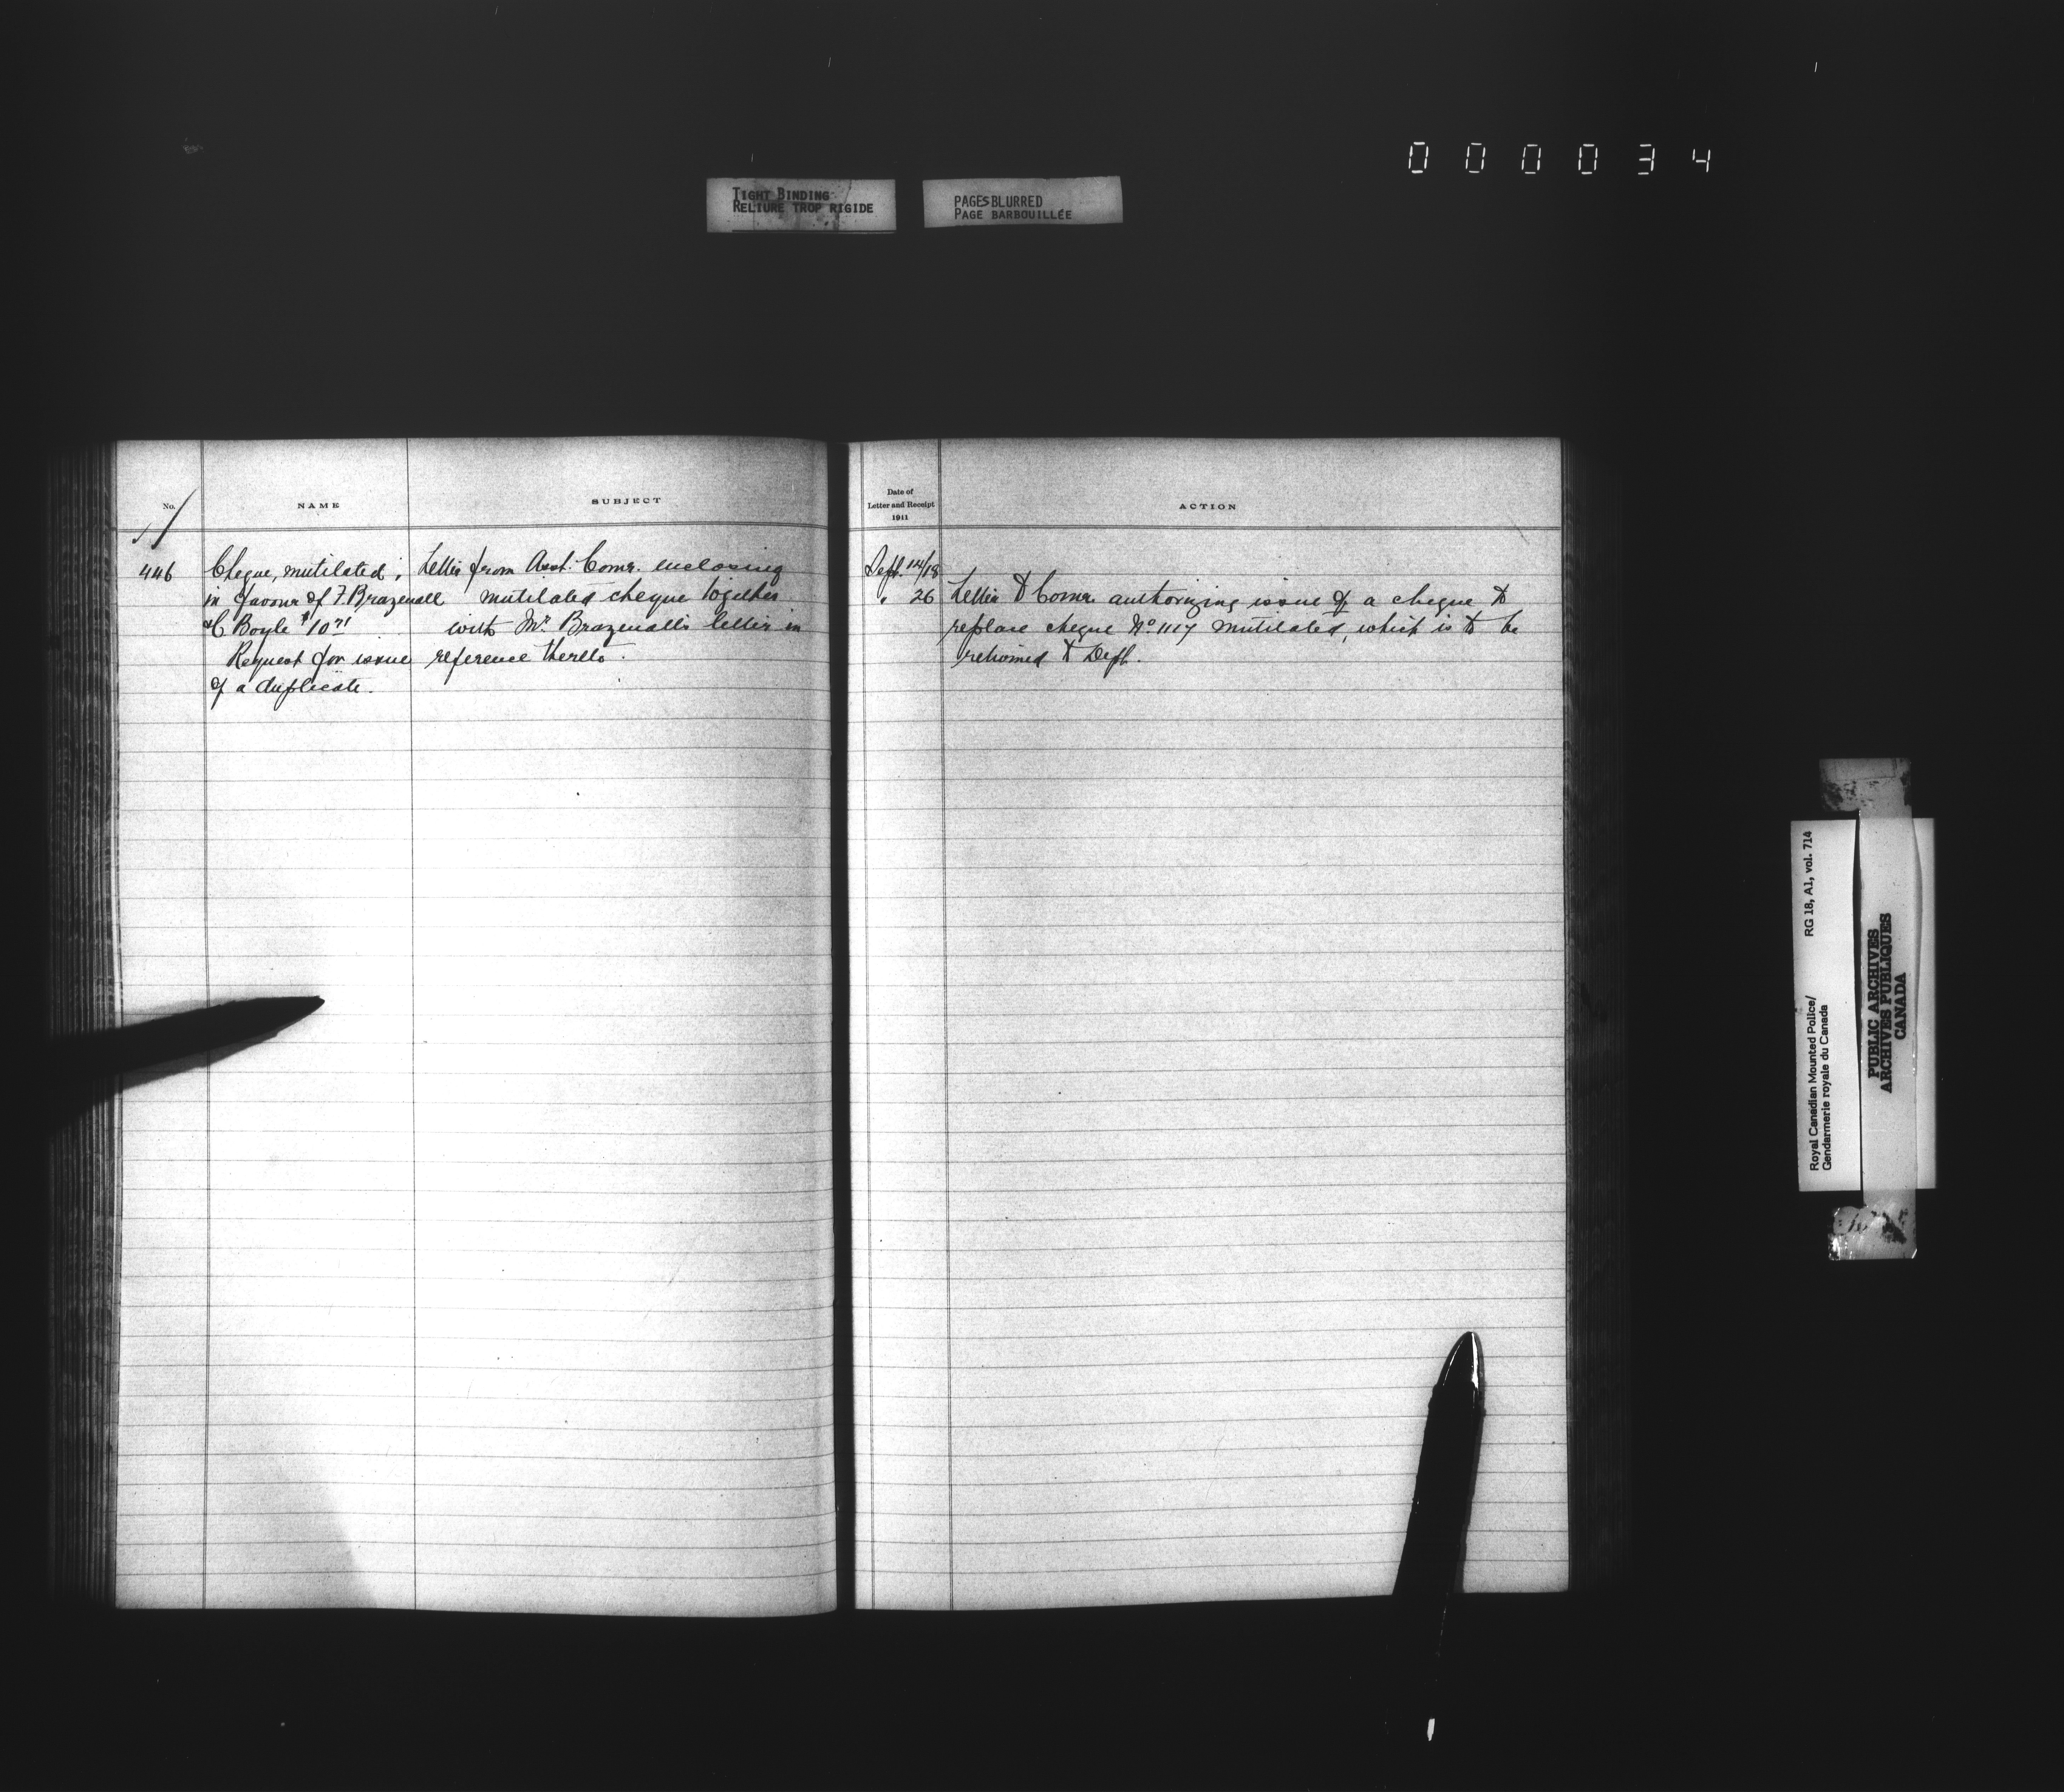 000034
TIGHT BINDING
RELIURE TROP RIGIDE
PAGES BLURRED
PAGE BARBOUILLÉE
No.
NAME
SUBJECT
446
Cheque, mutilated,
in favour of F. Brazenall
& C Boyle $10 71
Request for issue
of a duplicate.
Letter from Asst. Comr. enclosing
mutilated cheque together
with Mr. Brazenall's letter in
reference thereto.
Date of
Letter and Receipt
1911
ACTION
Sept. 14/18
" 26
Letter to Comr. authorizing issue of a cheque to
replace cheque No. 1117 mutilated, which is to be
returned to Dept.
Royal Canadian Mounted Police/ RG 18, A1, vol. 714
Gendarmerie royale du Canada
PUBLIC ARCHIVES
ARCHIVES PUBLIQUES
CANADA